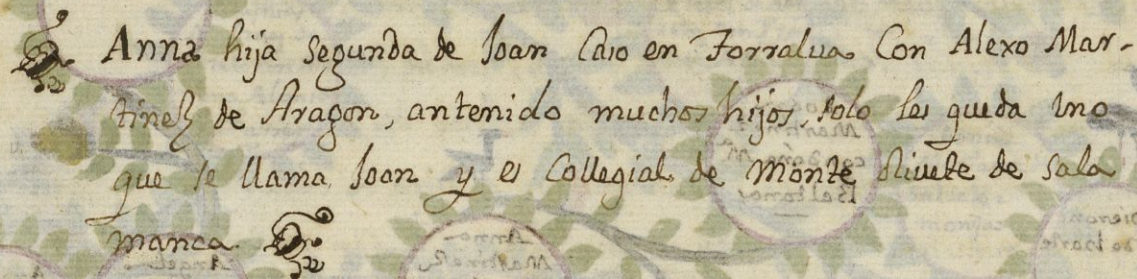 Anna hija segunda de Joan Caso en Torralua Con Alexo Mar-
tinez de Aragon, antenido muchos hijos, solo les queda uno
que se llama Joan y es Collegial de Monte Oliuete de Sala
manca